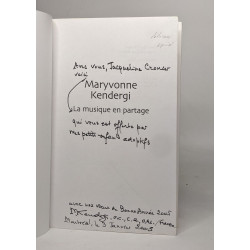 Avec vous, Jacqueline
voici
Maryvonne
Kendergi
La musique en partage
qui vous est offerte par
mes petits enfants adoptifs
avec mes vœux de Bonne Année 2005
MKendergi, O.C., C.Q.,
Montréal, le 3 Janvier 2005